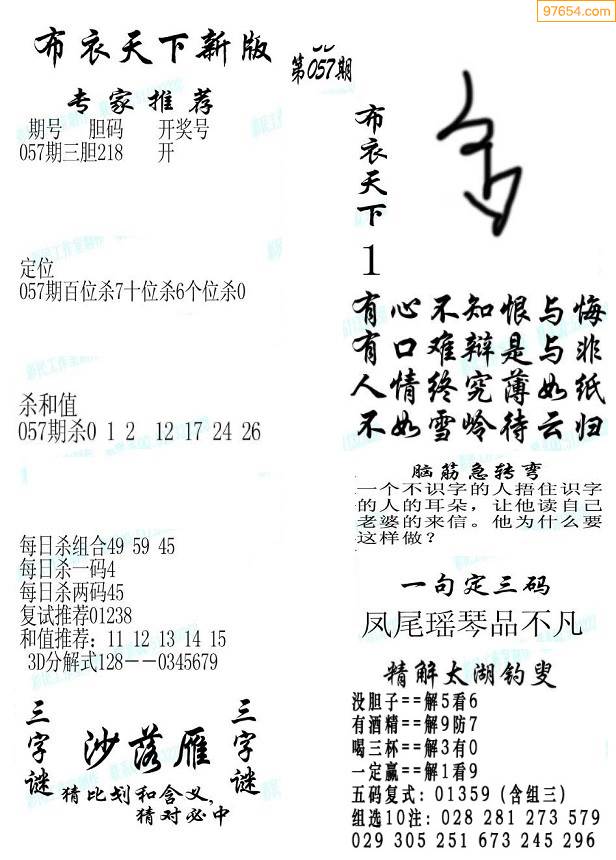 97654.com
布衣天下新版
专家推荐
期号 胆码 开奖号
057期三胆218 开
定位
057期百位杀7十位杀6个位杀0
杀和值
057期杀0 1 2 12 17 24 26
每日杀组合49 59 45
每日杀一码4
每日杀两码45
复试推荐01238
和值推荐: 11 12 13 14 15
3D分解式128--0345679
三字谜
沙落雁
三字谜
猜比划和含义,
猜对必中
第057期
布衣天下
1
有心不知恨与悔
有口难辩是与非
人情终究薄如纸
不如雪岭待云归
脑筋急转弯
一个不识字的人捂住识字
的人的耳朵，让他读自己
老婆的来信。他为什么要
这样做?
一句定三码
凤尾瑶琴品不凡
精解太湖钓叟
没胆子==解5看6
有酒精==解9防7
喝三杯==解3有0
一定赢==解1看9
五码复式: 01359 (含组三)
组选10注: 028 281 273 579
029 305 251 673 245 296